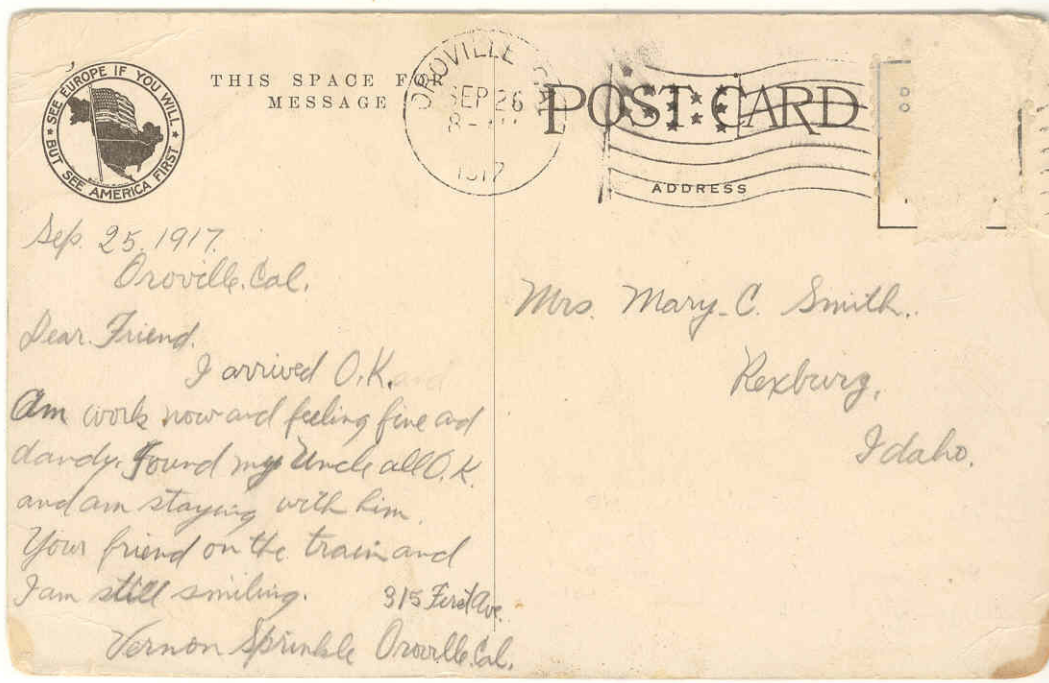 SEE EUROPE IF YOU WILL
BUT SEE AMERICA FIRST
THIS SPACE FOR
MESSAGE
OROVILLE
SEP 26
1917
POST CARD
ADDRESS
Sep. 25, 1917.
Oroville, Cal.
Dear Friend.
I arrived O.K. and
Am work now and feeling fine ad
dandy. Found my Uncle all O.K.
and am staying with him.
Your friend on the train and
I am still smiling.
315 First Ave.
Vernon Sprinkle Oroville, Cal.
Mrs. Mary C. Smith.
Rexburg,
Idaho.